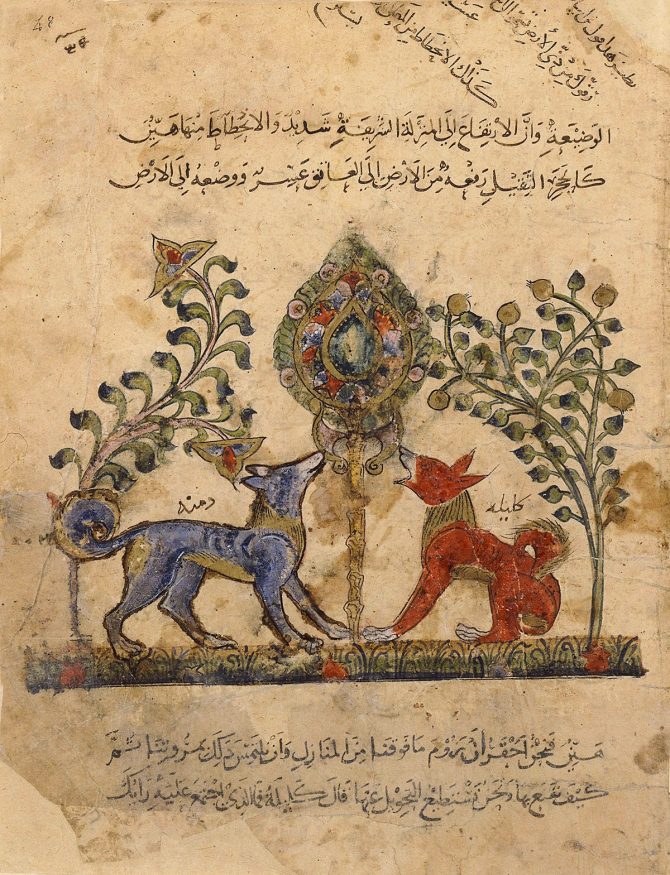 48
كذلك الانحطاط من
الوضيعة وَأنَّ الارتفاع إلى المنزلة الشريفة شديد والانحطاط منها هين
كالحجر الثقيل رفعه من الأرض الى العاتق عسر ووضعه إلى الأرض
دمنه
كليله
هين فنحن احق أن نروم ما فوقنا من المنازل وان نلتمس ذلك بمروتنا ثم
كيف نقنع بها ونحن نستطيع التحويل عنها قال كليلة فما الذي اجتمع عليه رائك